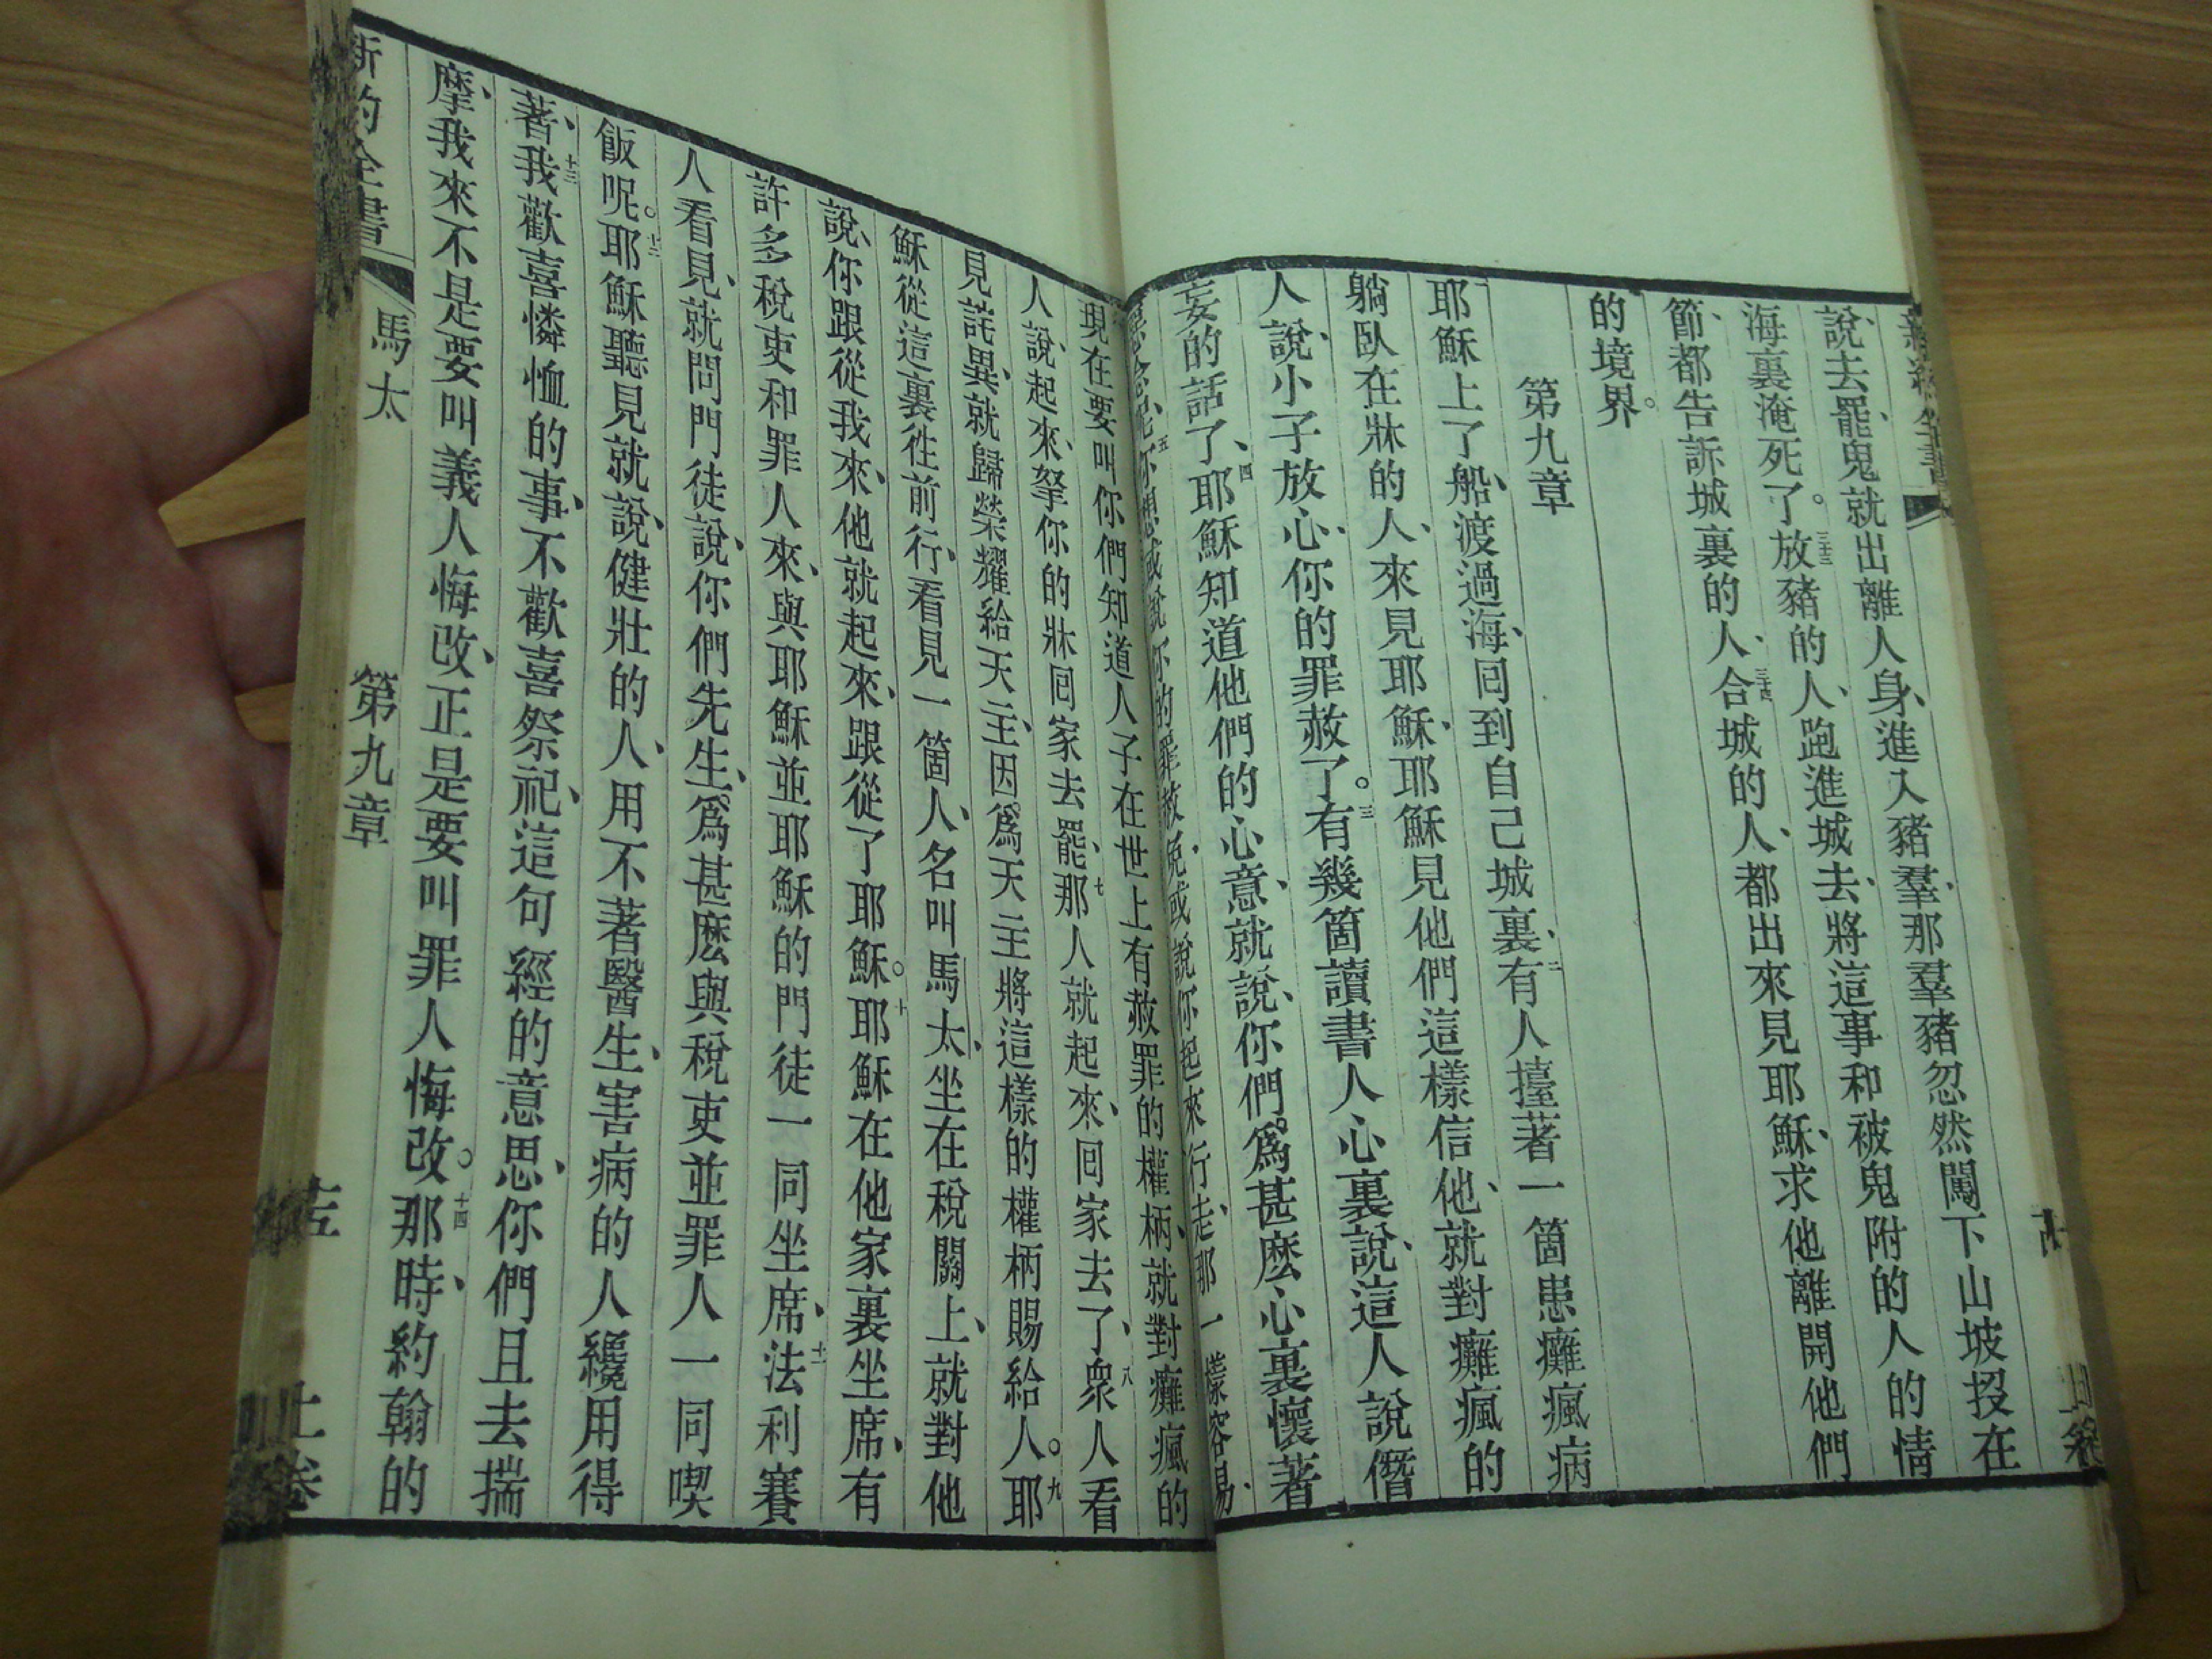 說、去罷、鬼就出離人身、進入豬羣、那羣豬忽然闖下山坡投在
海裏淹死了。三十三放豬的人、跑進城去、將這事和被鬼附的人的情
節、都告訴城裏的人、三十四合城的人、都出來見耶穌、求他離開他們
的境界。
第九章
耶穌上了船、渡過海、回到自己城裏、二有人擡著一箇患癱瘋病
躺臥在牀的人、來見耶穌、耶穌見他們這樣信他、就對癱瘋的
人說、小子放心、你的罪赦了。三有幾箇讀書人心裏說、這人說僭
妄的話了、四耶穌知道他們的心意、就說、你們爲甚麽心裏懷著
惡念呢、五你想或說你的罪赦免、或說你起來行走、那一樣容易、
現在要叫你們知道人子在世上有赦罪的權柄、就對癱瘋的
人說、起來、拏你的牀回家去罷、七那人就起來、回家去了、八衆人看
見詫異、就歸榮耀給天主、因爲天主將這樣的權柄賜給人。九耶
穌從這裏徃前行、看見一箇人、名叫馬太、坐在稅關上、就對他
說、你跟從我來、他就起來、跟從了耶穌。十耶穌在他家裏坐席、有
許多稅吏和罪人來、與耶穌並耶穌的門徒一同坐席、十一法利賽
人看見、就問門徒說、你們先生、爲甚麽與稅吏並罪人一同喫
飯呢。十二耶穌聽見就說、健壯的人、用不著醫生、害病的人纔用得
著、十三我歡喜憐恤的事、不歡喜祭祀、這句經的意思、你們且去揣
摩、我來不是要叫義人悔改、正是要叫罪人悔改。十四那時、約翰的
新約全書
馬太
第九章
十五
上卷